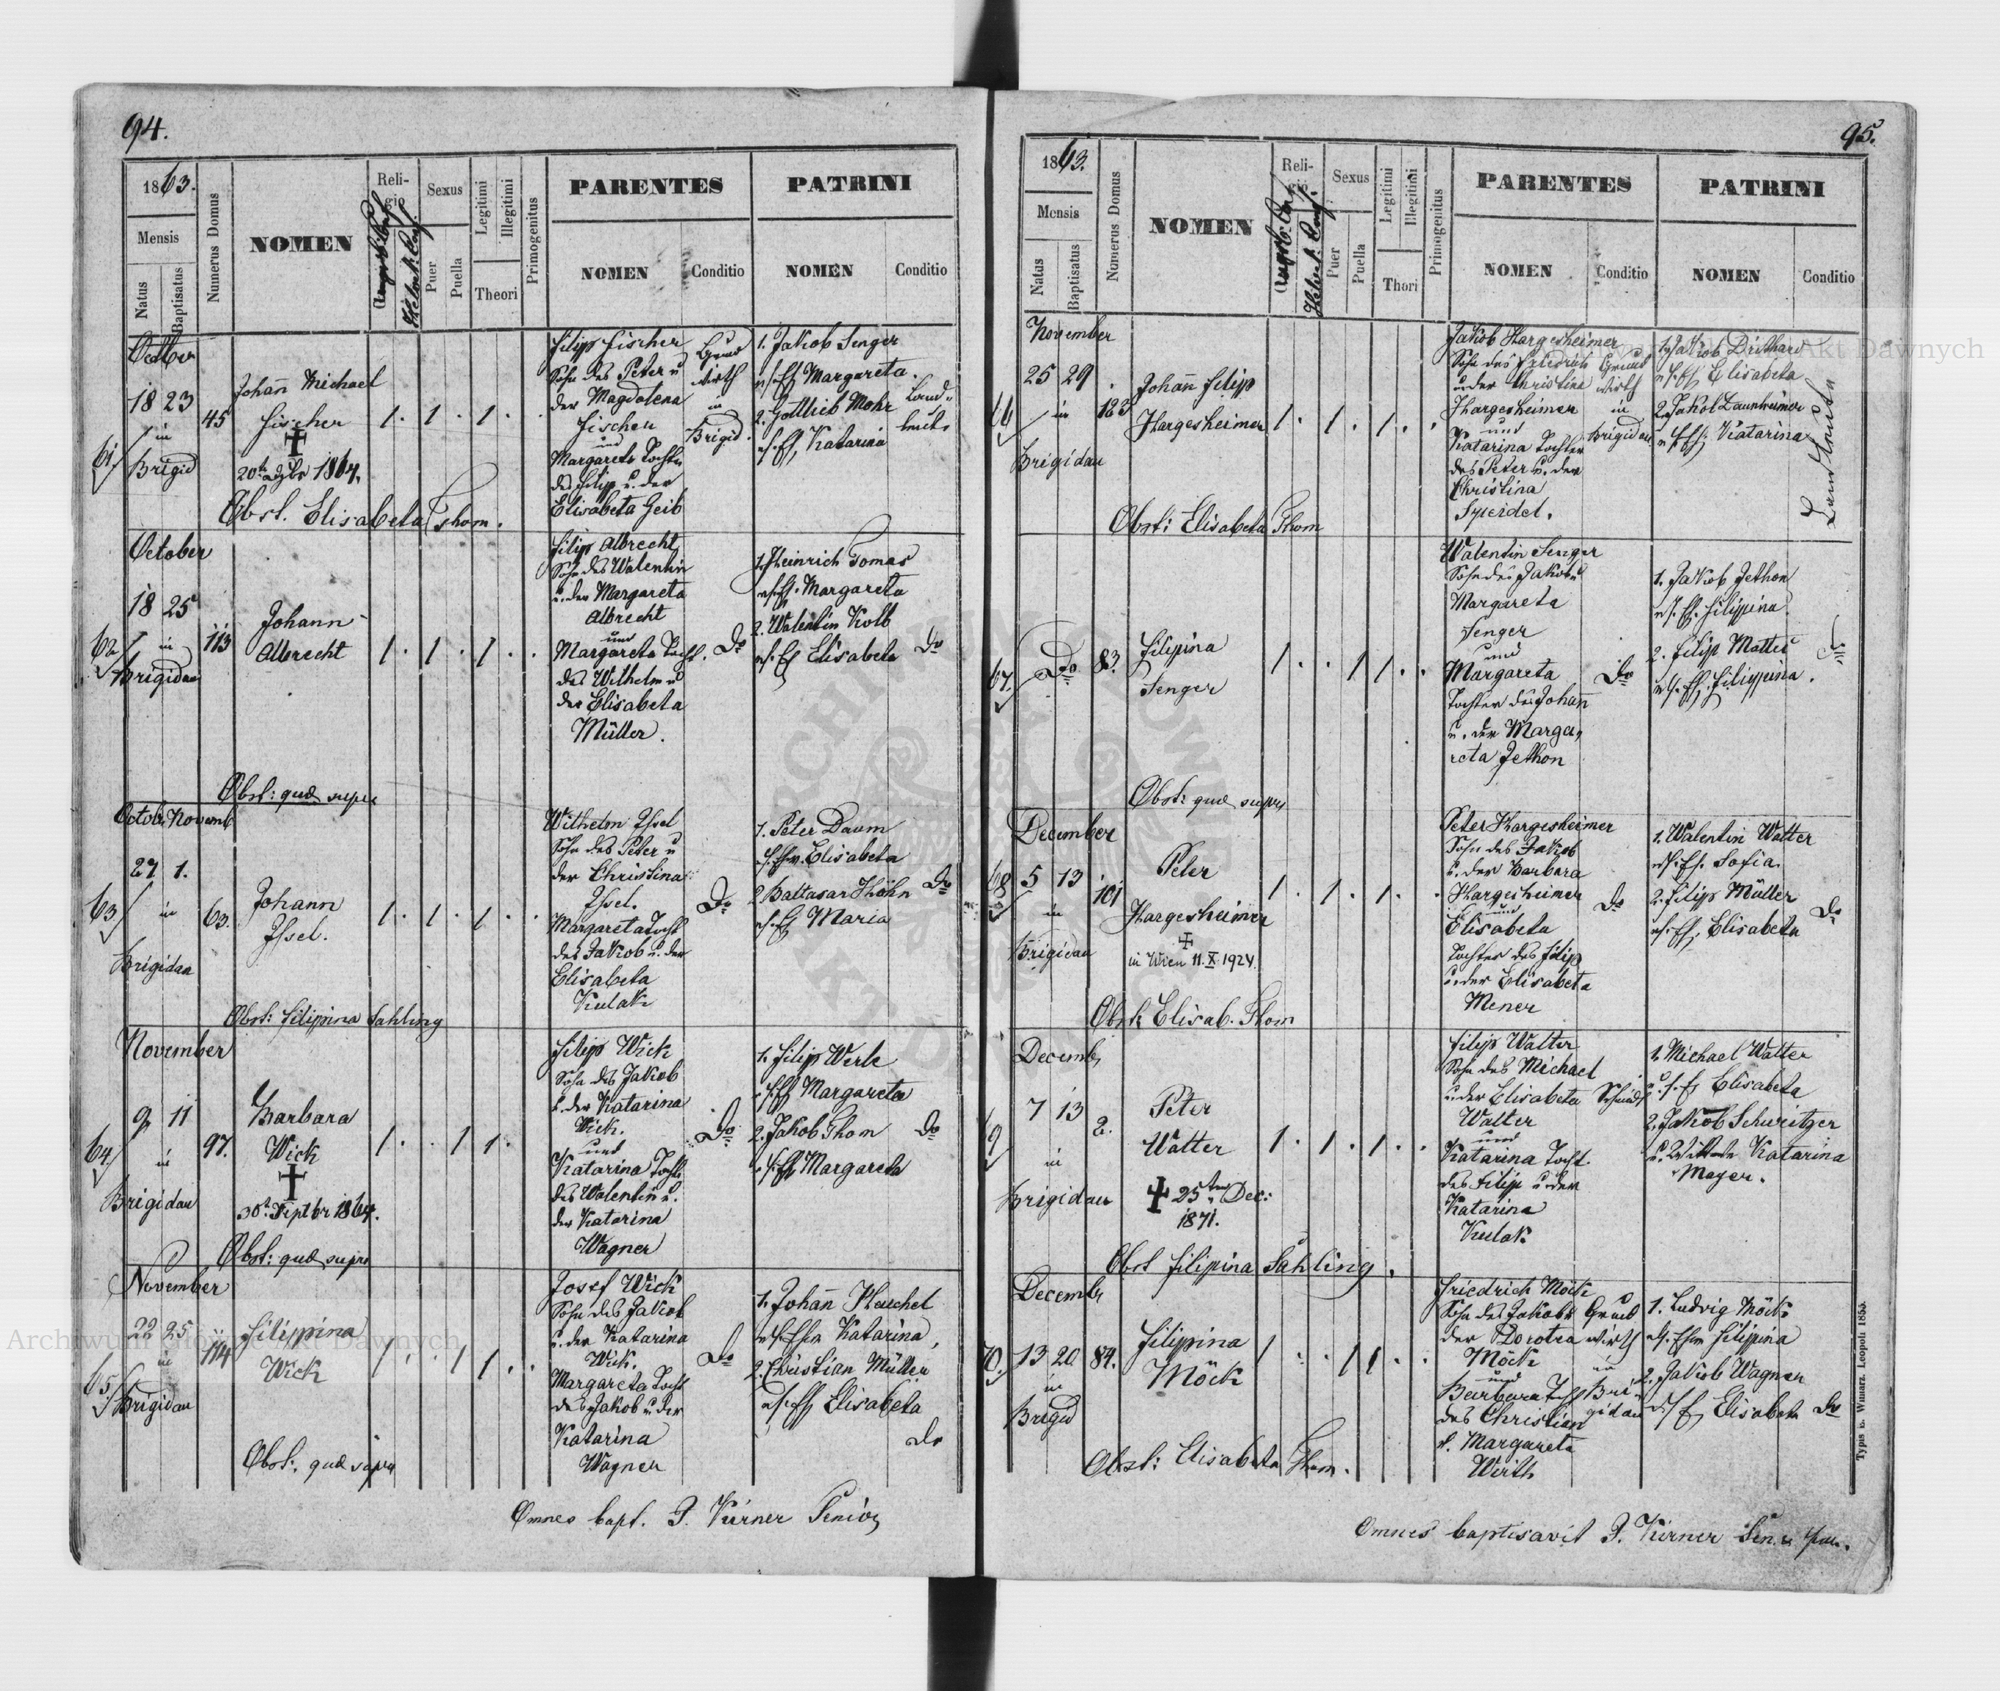 94.
1863.
Mensis
Natus
Baptisatus
Numerus Domus
NOMEN
Religio
Augsb. Conf.
Helvet. Conf.
Sexus
Puer
Puella
Legitimi
Illegitimi
Theori
Primogenitus
PARENTES
NOMEN
Conditio
PATRINI
NOMEN
Conditio
October
18 23
in
Brigid
61
45
Johann Michael
Fischer
1864.
1. 1. 1.
Filip Fischer
Sohn des Peter u
der Magdalena
Fischer
und
Margareta Tochter
des Filip u. der
Elisabeta Geib
Grund
wirth
in
Brigid.
1. Jakob Senger
Margareta.
2. Gottlieb Mohr
Katarina
Land-
leute
Obst. Elisabeta Thom.
October
18 25
in
Brigidau
62
113
Johann
Albrecht
1. 1. 1.
Filip Albrecht
Sohn des Walentin
u. der Margareta
Albrecht
und
Margareta Tocht.
des Wilhelm u
der Elisabeta
Müller.
Do
1. Heinrich Tomas
Margareta
2. Walentin Kolb
Elisabeta
Do
Obst: quae supra
Octob. Novemb
27 1.
in
Brigidau
63
63.
Johann
Issel.
1. 1. 1.
Wilhelm Issel
Sohn des Peter u
der Christina
Issel.
Margareta Tocht
des Jakob u. der
Elisabeta
Kulak
Do
1. Peter Daum
Elisabeta
2. Baltasar Höhn
Maria
Do
Obst: Filippina Sahling
November
9 11
in
Brigidau
64
97.
Barbara
Wick
30t Septbr 1864.
1. 1 1.
Filip Wick
Sohn des Jakob
u. der Katarina
Wick.
und
Katarina Tocht
des Walentin u.
der Katarina
Wagner
Do
1. Filip Werle
Margareta
2. Jakob Thom
Margareta
Do
Obst: quae supra
November
22 25
in
Brigidau
65
114
Filippina
Wick
1. 1 1.
Josef Wick
Sohn des Jakob
u. der Katarina
Wick.
Margareta Tocht
des Jakob u der
Katarina
Wagner
Do
1. Johann Heuchel
Katarina,
2. Christian Müller
Elisabeta
do
Obst: quae supra
Omnes bapt. J. Kürner Senior
95.
1863.
Mensis
Natus
Baptisatus
Numerus Domus
NOMEN
Religio
Augsb. Conf.
Helvet. Conf.
Sexus
Puer
Puella
Legitimi
Illegitimi
Thori
Primogenitus
PARENTES
NOMEN
Conditio
PATRINI
NOMEN
Conditio
November
25 29
in
Brigidau
66
123
Johann Filip
Hargesheimer
1. 1. 1.
Jakob Hargesheimer
Sohn des Friedrich
u der Christine
Hargesheimer
und
Katarina Tochter
des Peter u. der
Christina
Speidel.
Grund
wirth
in
Brigidau
1. Jakob
Elisabeta
2. Jakob Launheimer
Katarina
Landleute
Obst: Elisabeta Thom
67
Do
83.
Filippina
Senger
1. 1 1.
Walentin Senger
Sohn des Jakob u
Margareta
Senger
und
Margareta
Tochter des Johann
u. der Marga-
reta Jethon
Do
1. Jakob Jethon
Filippina
2. Filip Mattes
Filippina.
Obst: quae supra
December
5 13
in
Brigidau
68
101
Peter
Hargesheimer
in Wien 11. X. 1924.
1. 1. 1.
Peter Hargesheimer
Sohn des Jakob
u. der Barbara
Hargesheimer
und
Elisabeta
Tochter des Filip
u. der Elisabeta
Mener
Do
1. Walentin Walter
Sofia.
2. Filip Müller
Elisabeta
Do
Obst: Elisab. Thom
Decemb.
7 13
in
Brigidau
69
2.
Peter
Walter
25ten Dec:
1871.
1. 1. 1.
Filip Walter
Sohn des Michael
u der Elisabeta
Walter
und
Katarina Tocht.
des Filip u der
Katarina
Kulak
Schmidt
1. Michael Walter
Elisabeta
2. Jakob Schweitzer
u. Wittwe Katarina
Mayer.
Obst Filippina Sahling.
Decembr
13 20
in
Brigid
70
84.
Filippina
Möck
1. 1 1.
Friedrich Möck
Sohn des Jakob u
der Dorotea
Möck
und
Barbara Tocht
des Christian
u. Margareta
Wirth
Grund
wirth
in
Bri-
gidau
1. Ludvig Möck
Filippina
2. Jakob Wagner
Elisabeta
Do
Obst: Elisabeta Thom.
Omnes baptisavit J. Kürner Sen.
Typis E. Winiarz. Leopoli 1855.
Archiwum Główne Akt Dawnych